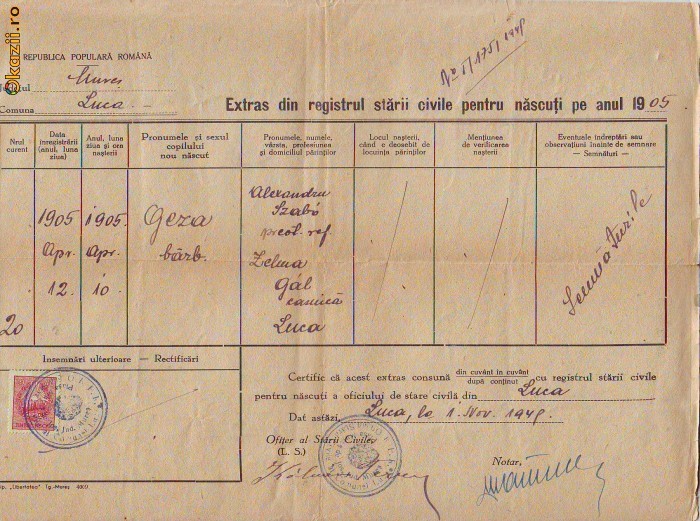 okazii.ro
REPUBLICA POPULARĂ ROMÂNĂ
Mureș
Comuna Luca
Extras din registrul stării civile pentru născuți pe anul 1905.
Nrul curent
Data înregistrării (anul, luna ziua)
Anul, luna ziua și ora nașterii
Pronumele și sexul copilului nou născut
Pronumele, numele, vârsta, profesiunea și domiciliul părinților
Locul nașterii, când e deosebit de locuința părinților
Mențiunea de verificarea nașterii
Eventuale îndreptări sau observațiuni înainte de semnare — Semnături —
20
1905 Apr. 12
1905. Apr. 10
Geza bărb.
Alexandru
Szabó
preot. ref.
Zelma
Gál
casnică
Luca
Semnăturile
Însemnări ulterioare — Rectificări
Certific că acest extras consună din cuvânt în cuvânt / după conținut cu registrul stării civile
pentru născuți a oficiului de stare civilă din Luca
Dat astăzi, Luca, la 1. Nov. 1948.
Ofițer al Stării Civile,
(L. S.)
Notar,
Tip. „Libertatea” Tg.-Mureș